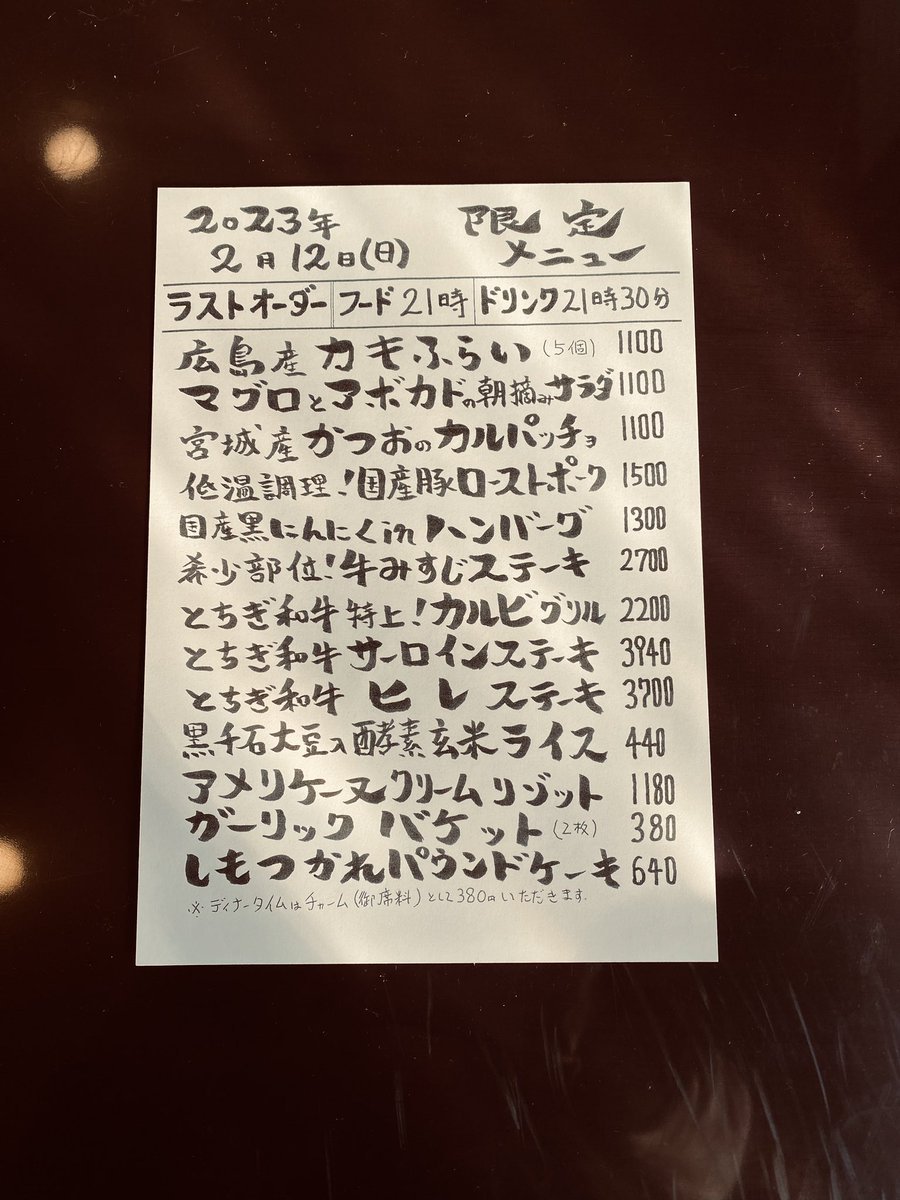 2023年 限定
2月12日(日) メニュー
ラストオーダー フード21時 ドリンク21時30分
広島産カキふらい(5個) 1100
マグロとアボカドの朝摘みサラダ 1100
宮城産かつおのカルパッチョ 1100
低温調理!国産豚ローストポーク 1500
国産黒にんにくinハンバーグ 1300
希少部位!牛みすじステーキ 2700
とちぎ和牛特上!カルビグリル 2200
とちぎ和牛サーロインステーキ 3940
とちぎ和牛ヒレステーキ 3700
黒千石大豆入酵素玄米ライス 440
アメリケーヌクリームリゾット 1180
ガーリックバケット(2枚) 380
しもつかれパウンドケーキ 640
※ディナータイムはチャーム(御席料)として380円いただきます。